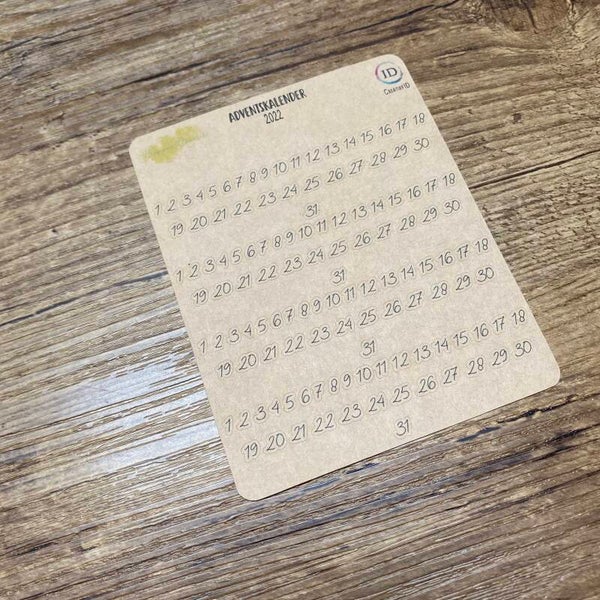 ADVENTSKALENDER
2022
ID
CreativeID
1 2 3 4 5 6 7 8 9 10 11 12 13 14 15 16 17 18
19 20 21 22 23 24 25 26 27 28 29 30
31
1 2 3 4 5 6 7 8 9 10 11 12 13 14 15 16 17 18
19 20 21 22 23 24 25 26 27 28 29 30
31
1 2 3 4 5 6 7 8 9 10 11 12 13 14 15 16 17 18
19 20 21 22 23 24 25 26 27 28 29 30
31
1 2 3 4 5 6 7 8 9 10 11 12 13 14 15 16 17 18
19 20 21 22 23 24 25 26 27 28 29 30
31